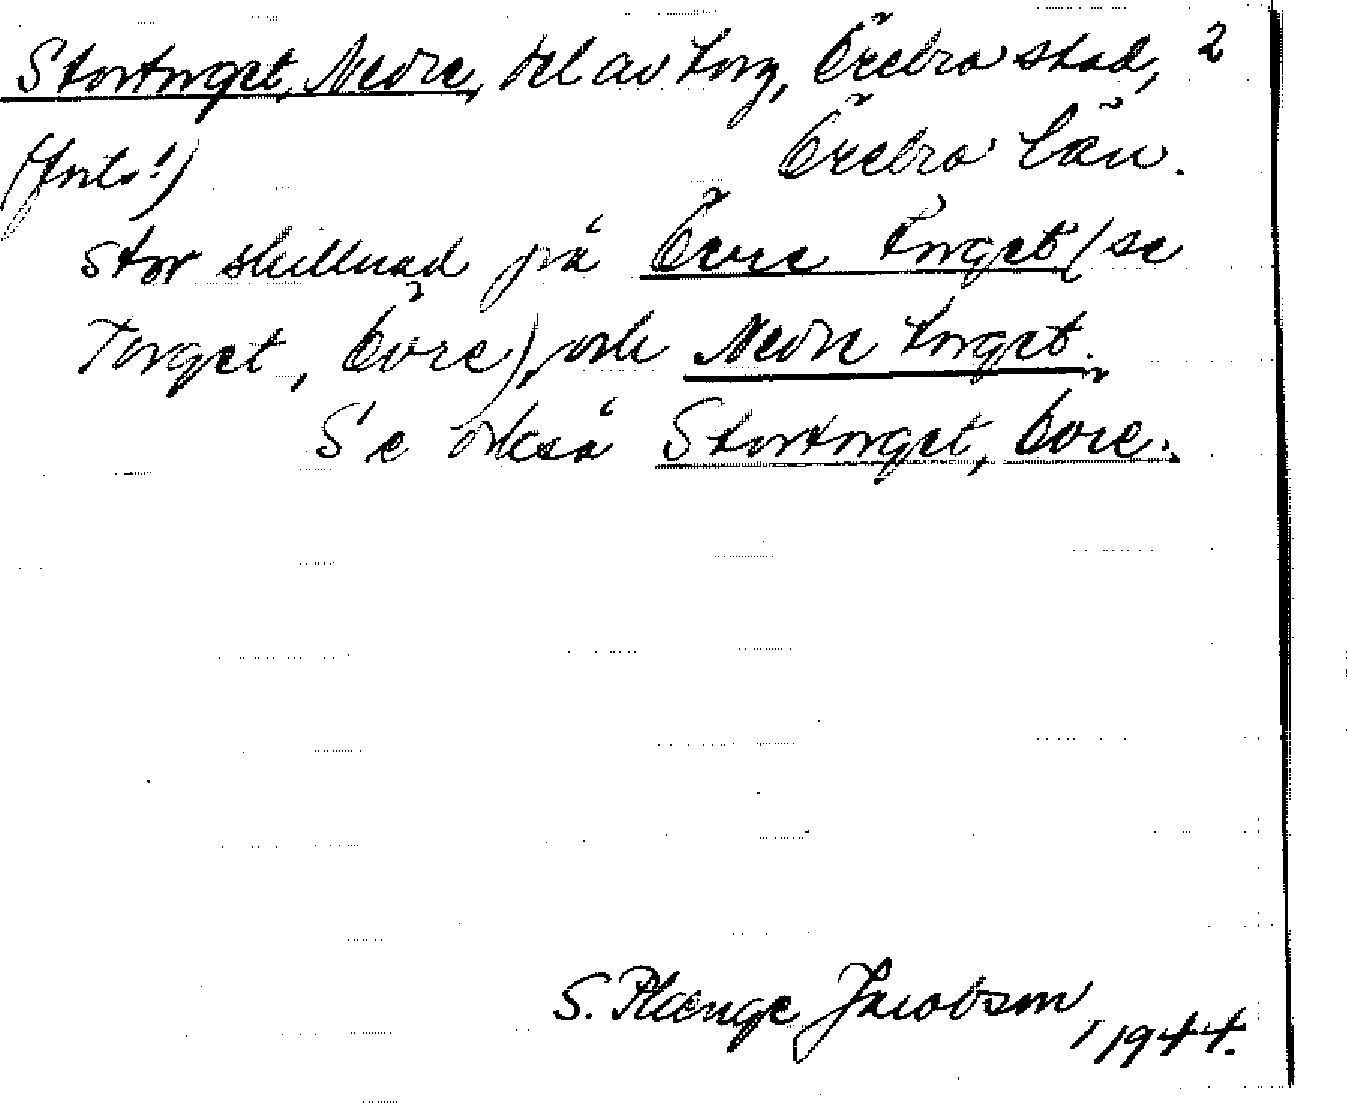 Stortorget, Nedre, del av torg, Örebro stad, 2
(forts!) Örebro län.
stor skillnad på Övre torget (se
Torget, Övre), och Nedre torget.
Se också Stortorget, Övre.
S. Plænge Jacobson, 1944.